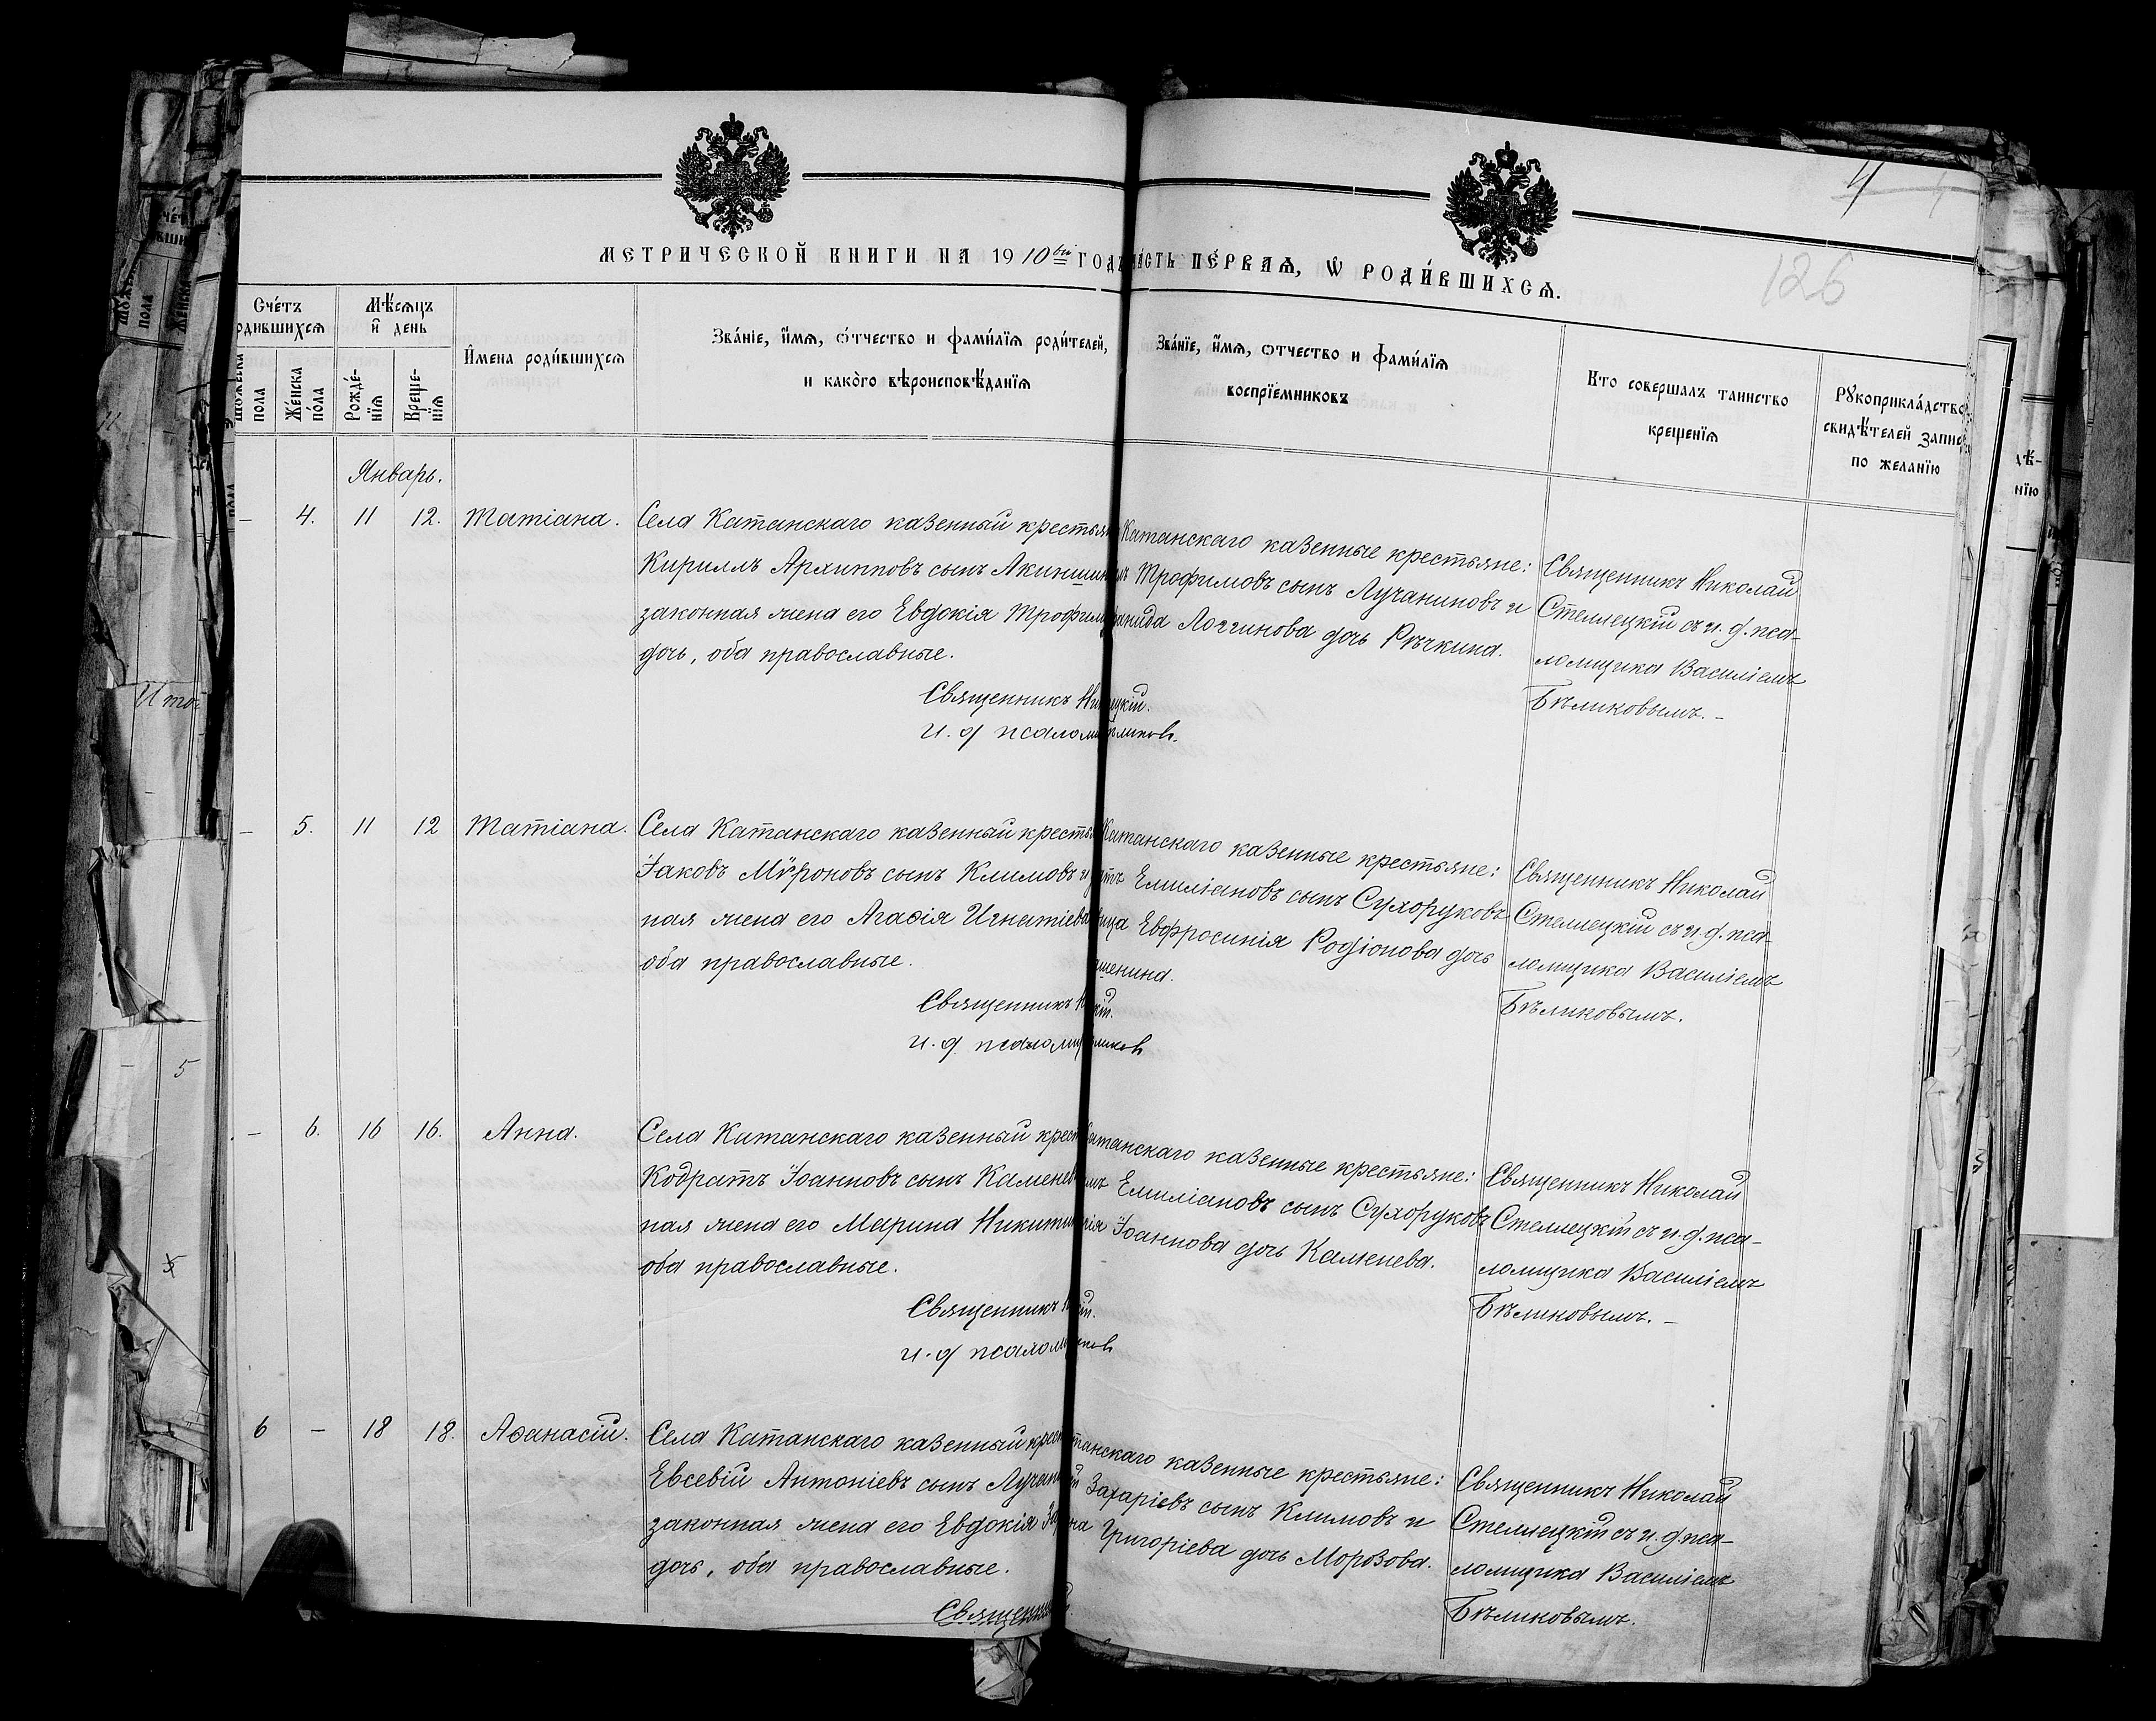 4
126
МЕТРИЧЕСКОЙ КНИГИ НА 1910ый ГОДЪ
ЧАСТЬ ПЕ́РВАѦ, Ѡ҆ РОДИ́ВШИХСѦ.
Сче́тъ родившихсѧ
Мѣ́сѧцъ и҆ день
И҆мена роди́вшихсѧ
Зва́нїе, и҆́мѧ, ѻ҆́тчество и фами́лїѧ роди́телей,
и како́го вѣроисповѣ́данїѧ
Зва́нїе, и҆́мѧ, ѻ҆тчество и фами́лїѧ
воспрїемниковъ
Кто совершалъ таинство
крещенїѧ
Рꙋкоприкла́дство
свидѣ́телей записи
по желанїю
Мꙋжеска пола
Же́нска по́ла
Рожде́нїѧ
Креще́нїѧ
Январь.
— 4. 11 12. Татіана.
Села Катанскаго казенный крестьян
Кирилъ Архипповъ сынъ Акиншин
законная жена его Евдокія Трофим
дочь, оба православные.
Священникъ Ни
и. д псалом
Катанскаго казенные крестьяне:
Трофимовъ сынъ Лучаниновъ и
Логгинова дочь Рѣчкина.
Священникъ Николай
Стеллецкій съ и. д. пса-
ломщика Василіемъ
Бѣликовымъ. —
— 5. 11 12 Татіана.
Села Катанскаго казенный кресть
Іаковъ Мѵроновъ сынъ Климовъ и
ная жена его Агаѳія Игнатіева
оба православные.
Священникъ Н
и. д. псалом
Катанскаго казенные крестьяне:
Емиліановъ сынъ Сухоруковъ
Евфросинія Родіонова дочь
шенина.
Священникъ Николай
Стеллецкій съ и. д. пса-
ломщика Василіемъ
Бѣликовымъ.
— 6. 16 16. Анна.
Села Катанскаго казенный крест
Кодратъ Іоанновъ сынъ Каменев
ная жена его Марина Никити
оба православные.
Священникъ
и. д псалом
Катанскаго казенные крестьяне:
Емиліановъ сынъ Сухоруковъ
Іоаннова дочь Каменева.
Священникъ Николай
Стеллецкій съ и. д. пса-
ломщика Василіемъ
Бѣликовымъ. —
6 — 18 18. Аѳанасій.
Села Катанскаго казенный крест
Евсевій Антоніевъ сынъ Лучан
законная жена его Евдокія За
дочь, оба православные.
Священник
танскаго казенные крестьяне:
Захаріевъ сынъ Климовъ и
Григоріева дочь Морозова.
Священникъ Николай
Стеллецкій съ и. д. пса-
ломщика Василіемъ
Бѣликовымъ.